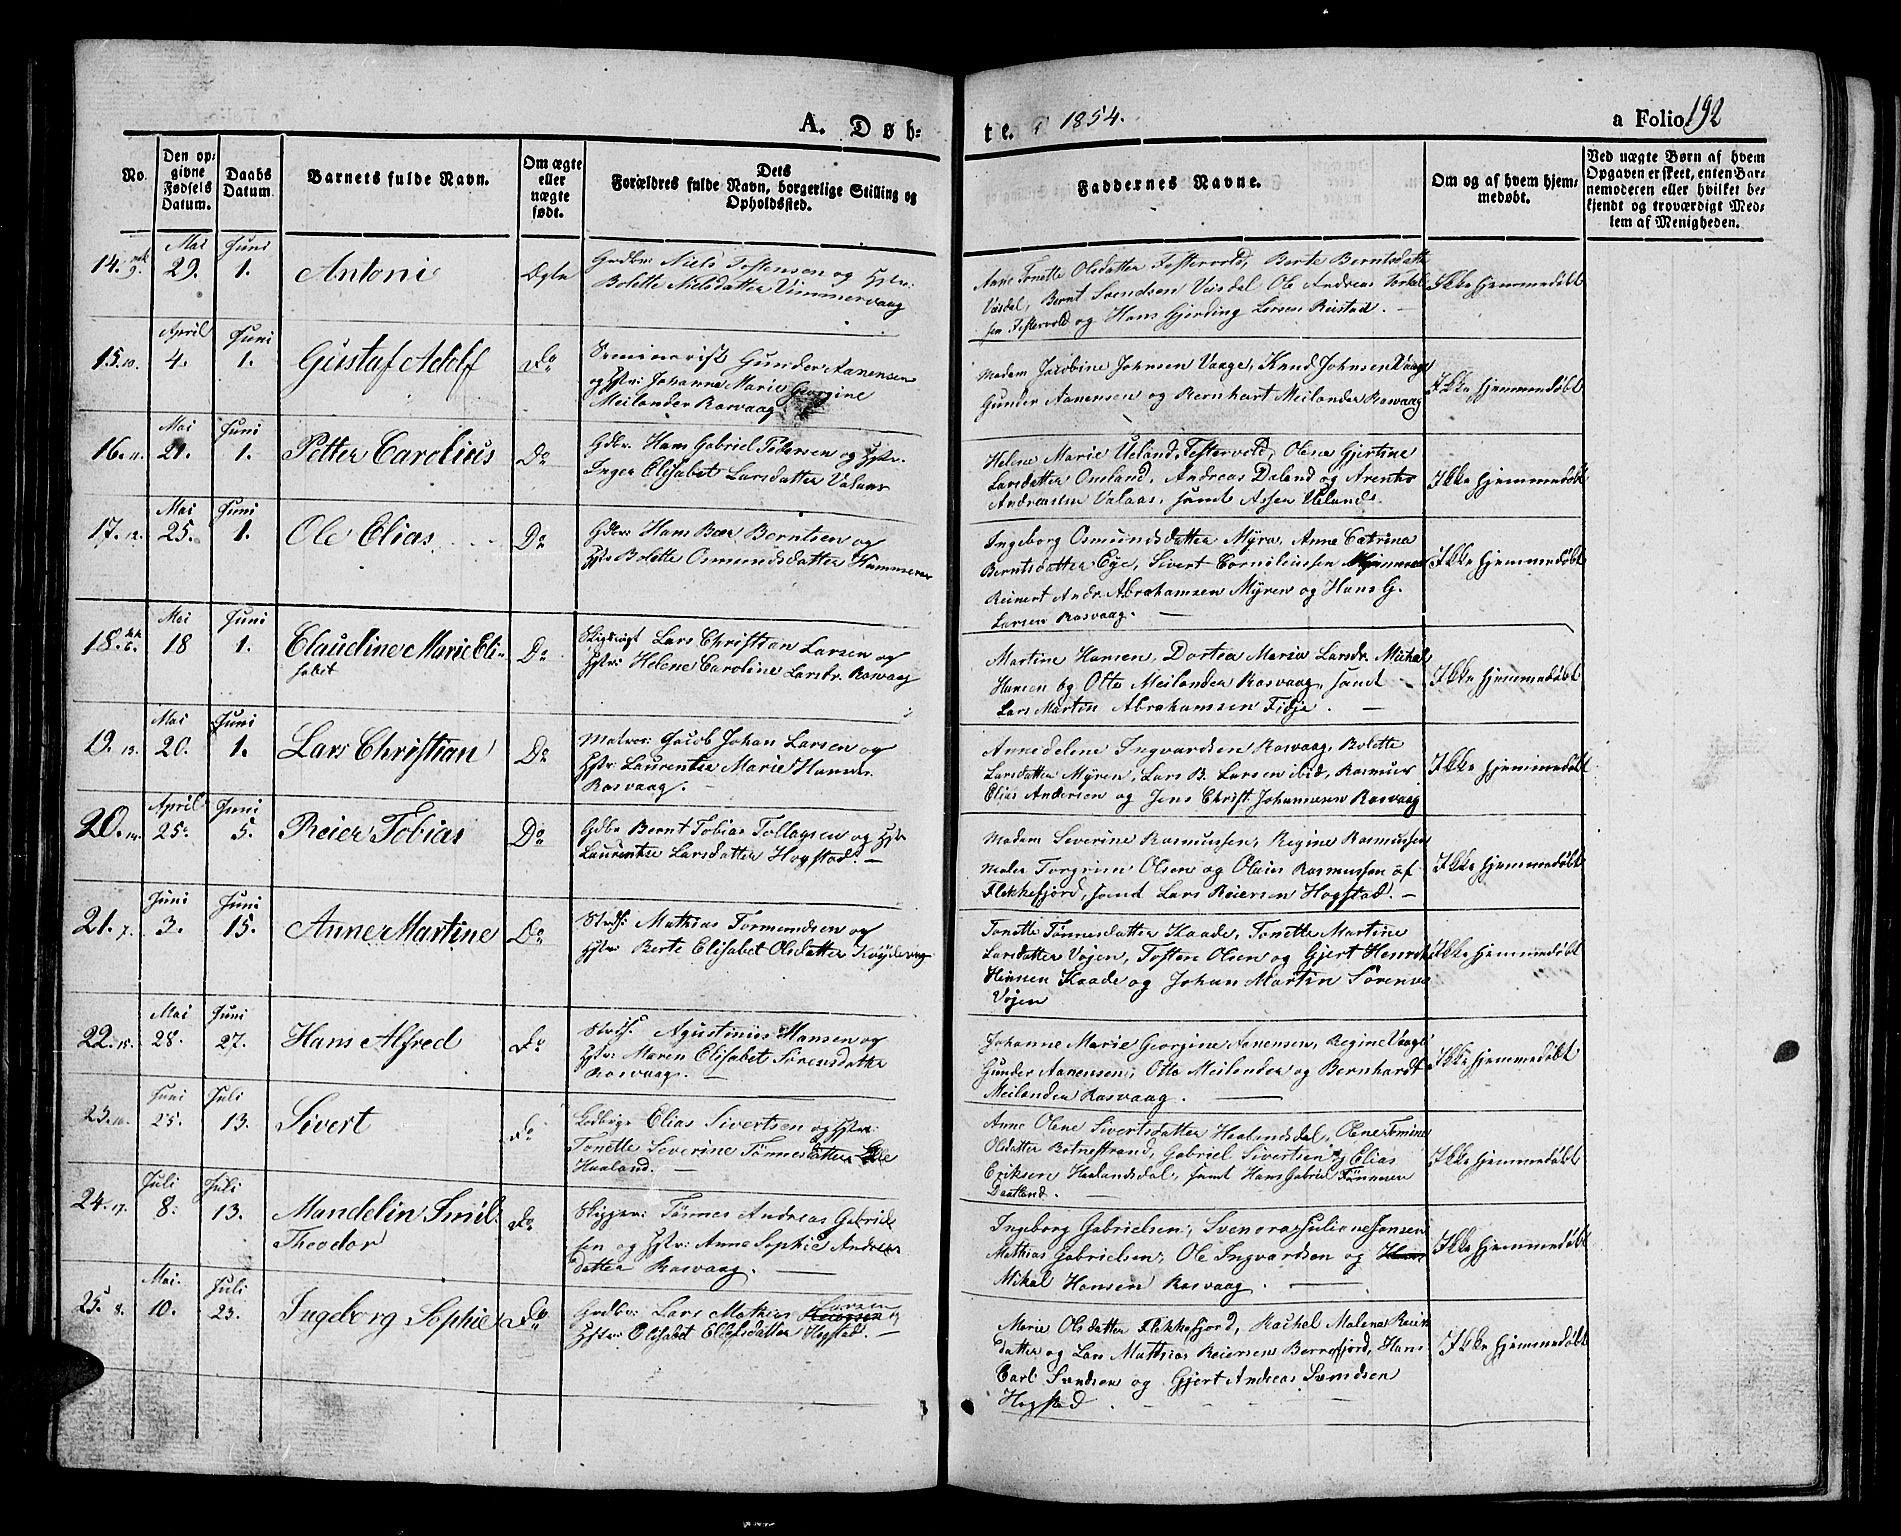 A. Døb-
te. 1854.
a Folio 192
No.
Den op-
givne
Fødsels
Datum.
Daabs
Datum.
Barnets fulde Navn.
Om ægte
eller
uægte
født.
Dets
Forældres fulde Navn, borgerlige Stilling og
Opholdssted.
Faddernes Navne.
Om og af hvem hjem-
medøbt.
Ved uægte Børn af hvem
Opgaven er skeet, enten Bar-
nemoderen eller hvilket be-
kjendt og troværdigt Med-
lem af Menigheden.
14. 9. Mai 29. Juni 1. Antoni Ægte
Grdbr: Niels Tostensen og Hstr:
Bolette Nielsdatter Vimmervaag
Anne Tonette Olsdatter Festervold, Berte Berntsdatt
Veisdal, Bernt Svendsen Veisdal Ole Andreas Torkel
sen Festervold og Hans Gjerding Larsen Reistad.
Ikke hjemmedøbt
15. 10. April 4. Juni 1. Gustaf Adolf Do
Seminarist Gunder Aanensen
og Hstr: Johanne Marie Georgine
Meilander Rasvaag
Madam Jacobine Johnsen Vaage, Knud Johnsen Vaage
Gunder Aanensen og Bernhart Meilander Rasvaag
Ikke hjemmedøbt
16. 11. Mai 21. Juni 1. Petter Carolius Do
Gdbr. Hans Gabriel Pedersen og Hstr.
Inger Elisabet Larsdatter Valaas
Helene Marie Ueland, Festervold, Olene Gjertine
Larsdatter Omland, Andreas Daland og Arent
Andreassen Valaas, samt Asser Uelands.
Ikke hjemmedøbt
17. 12. Mai 25. Juni 1. Ole Elias Do
Gdbr: Hans Bær Berntsen og
Hstr Bolette Osmundsdatter Hummeren
Ingeborg Osmundsdatter Myra, Anne Catrine
Berntsdatter Eye, Sivert Corneliussen
Reinert Andr. Abrahamsen Myren og Hans G.
Larsen Rasvaag.
Ikke hjemmedøbt
18. 6. Mai 18 Juni 1. Claudine Marie Eli-
sabet Do
Lars Christian Larsen og
Hstr: Helene Caroline Larsdr. Rasvaag
Martine Hansen, Dortea Maria Larsdr. Mickal
Hansen og Otto Meilander Rasvaag, samt
Lars Martin Abrahamsen Fidje.
Ikke hjemmedøbt
19. 13. Mai 20. Juni 1. Lars Christian Do
Matros: Jacob Johan Larsen og
Hstr: Laurentse Marie Hansen
Rasvaag.
Annedelene Ingvardsen Rasvaag, Bolette
Larsdatter Myren, Lars B. Larsen ibid, Rasmus
Elias Andersen og Jens Christ. Johannesen Rasvaag
Ikke hjemmedøbt
20. 14. April 25. Juni 5. Reier Tobias Do
Gdbr Bernt Tobias Tollagsen og Hstr
Laurentse Larsdatter Hogstad.
Madam Severine Rasmussen, Regine Rasmussen
Maler Torgrim Olsen og Olaus Rasmussen af
Flekkefjord, samt Lars Reiersen Hogstad.
Ikke hjemmedøbt
21. 7. Juni 3. Juni 15. Anne Martine Do
Strds: Mathias Tormundsen og
Hstr: Berte Elisabet Olsdatter
Tonette Tønnesdatter Kaade, Tonette Martine
Larsdatter Vojen, Tosten Olsen og Gjert Henrik
Hansen Kaade og Johan Martin Sørensen
Vojen
Ikke hjemmedøbt
22. 15. Mai 28. Juni 27. Hans Alfred Do
Strds. Agustinius Hansen og
Hstr: Maren Elisabet Sørensdatter
Rasvaag.
Johanne Marie Georgine Aanensen, Regine Vaage
Gunder Aanensen, Otto Meilander og Bernhardt
Meilander Rasvaag.
Ikke hjemmedøbt
23. 16. Juni 25. Juli 13. Sivert Do
Elias Sivertsen og Hstr:
Tonette Severine Tønnesdatter
Haaland.
Anne Olene Sivertsdatter Haalandsdal, Olene Tomine
Olsdatter Botnestrand, Gabriel Sivertsen og Elias
Eriksen Haalandsdal, samt Hans Gabriel Tønnesen
Daatland.
Ikke hjemmedøbt
24. 17. Juli 8. Juli 13. Mandelin Emil
Theodor Do
Skipper: Tønnes Andreas Gabriel
sen og Hstr: Anne Sophie Andreas
datter Rasvaag.
Ingeborg Gabrielsen, Svenora Juliane Jonsen
Mathias Gabrielsen, Ole Ingvardsen og Hans
Mikal Hansen Rasvaag.
Ikke hjemmedøbt
25. 8. Mai. 10. Juli 23. Ingeborg Sophie Do
Grdbr: Lars Mathias Reiersen Larsen og
Hstr: Elisabet Ellefsdatter Hogstad.
Marie Olsdatter Flekkefjord, Rachel Malene Reiers
datter og Lars Mathias Reiersen Berrefjord, Hans
Carl Svendsen og Gjert Andreas Svendsen
Hogstad
Ikke hjemmedøbt